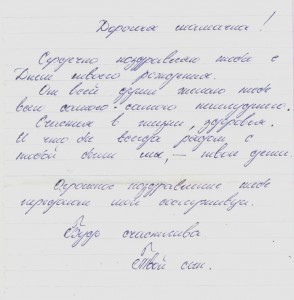 Дорогая мамочка!
Сердечно поздравляю тебя с
Днем твоего рождения.
От всей души желаю тебе
всего самого-самого наилучшего.
Счастья в жизни, здоровья.
И что бы всегда рядом с
тобой были мы, — твои дети.
Огромное поздравление тебе
передают мои
Будь счастлива
Твой сын.